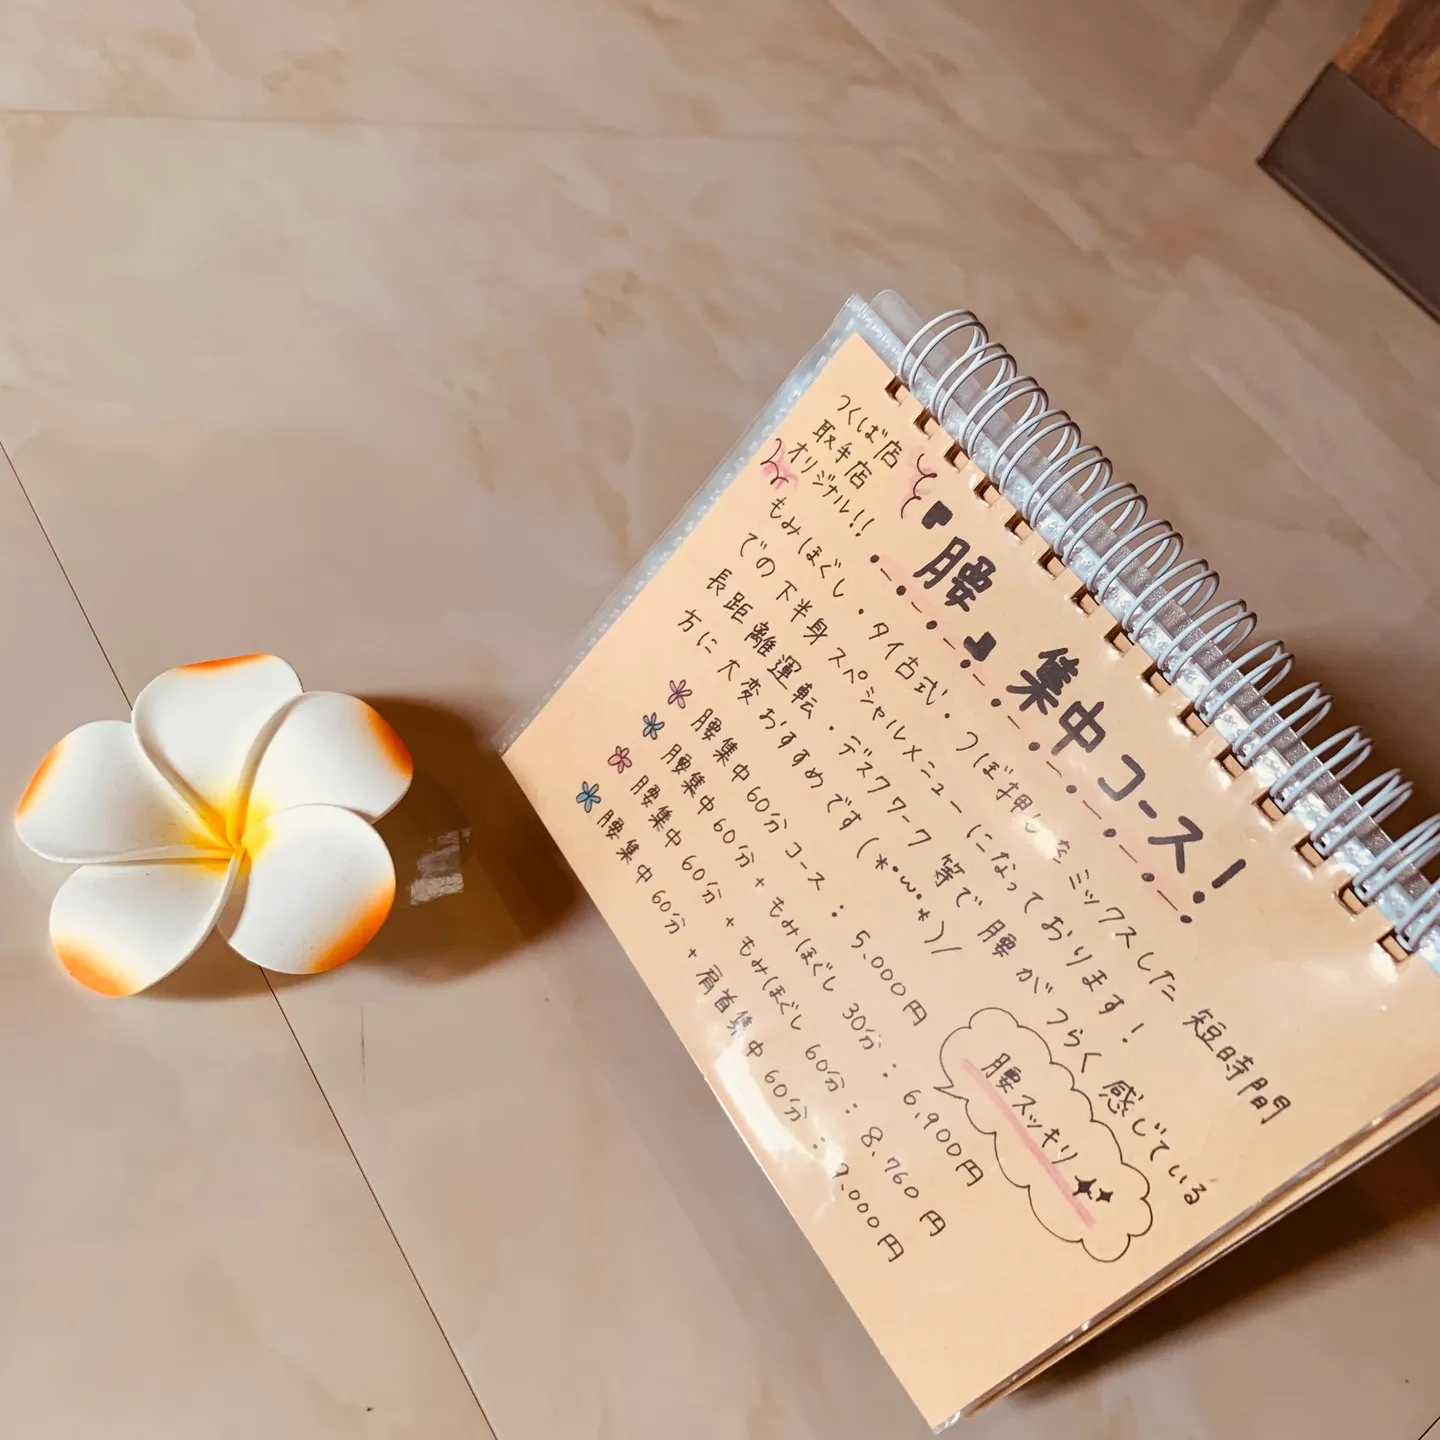 つくば店
取手店
オリジナル!!
"腰"集中コース!
もみほぐし・タイ古式・つぼ押しをミックスした短時間
での下半身スペシャルメニューになっております!
長距離運転・デスクワーク等で腰がつらく感じている
方に大変おすすめです(*・ω・*)/
腰集中60分コース:5,000円
腰集中60分+もみほぐし30分:6,900円
腰集中60分+もみほぐし60分:8,760円
腰集中60分+肩首集中60分:9,000円
腰スッキリ